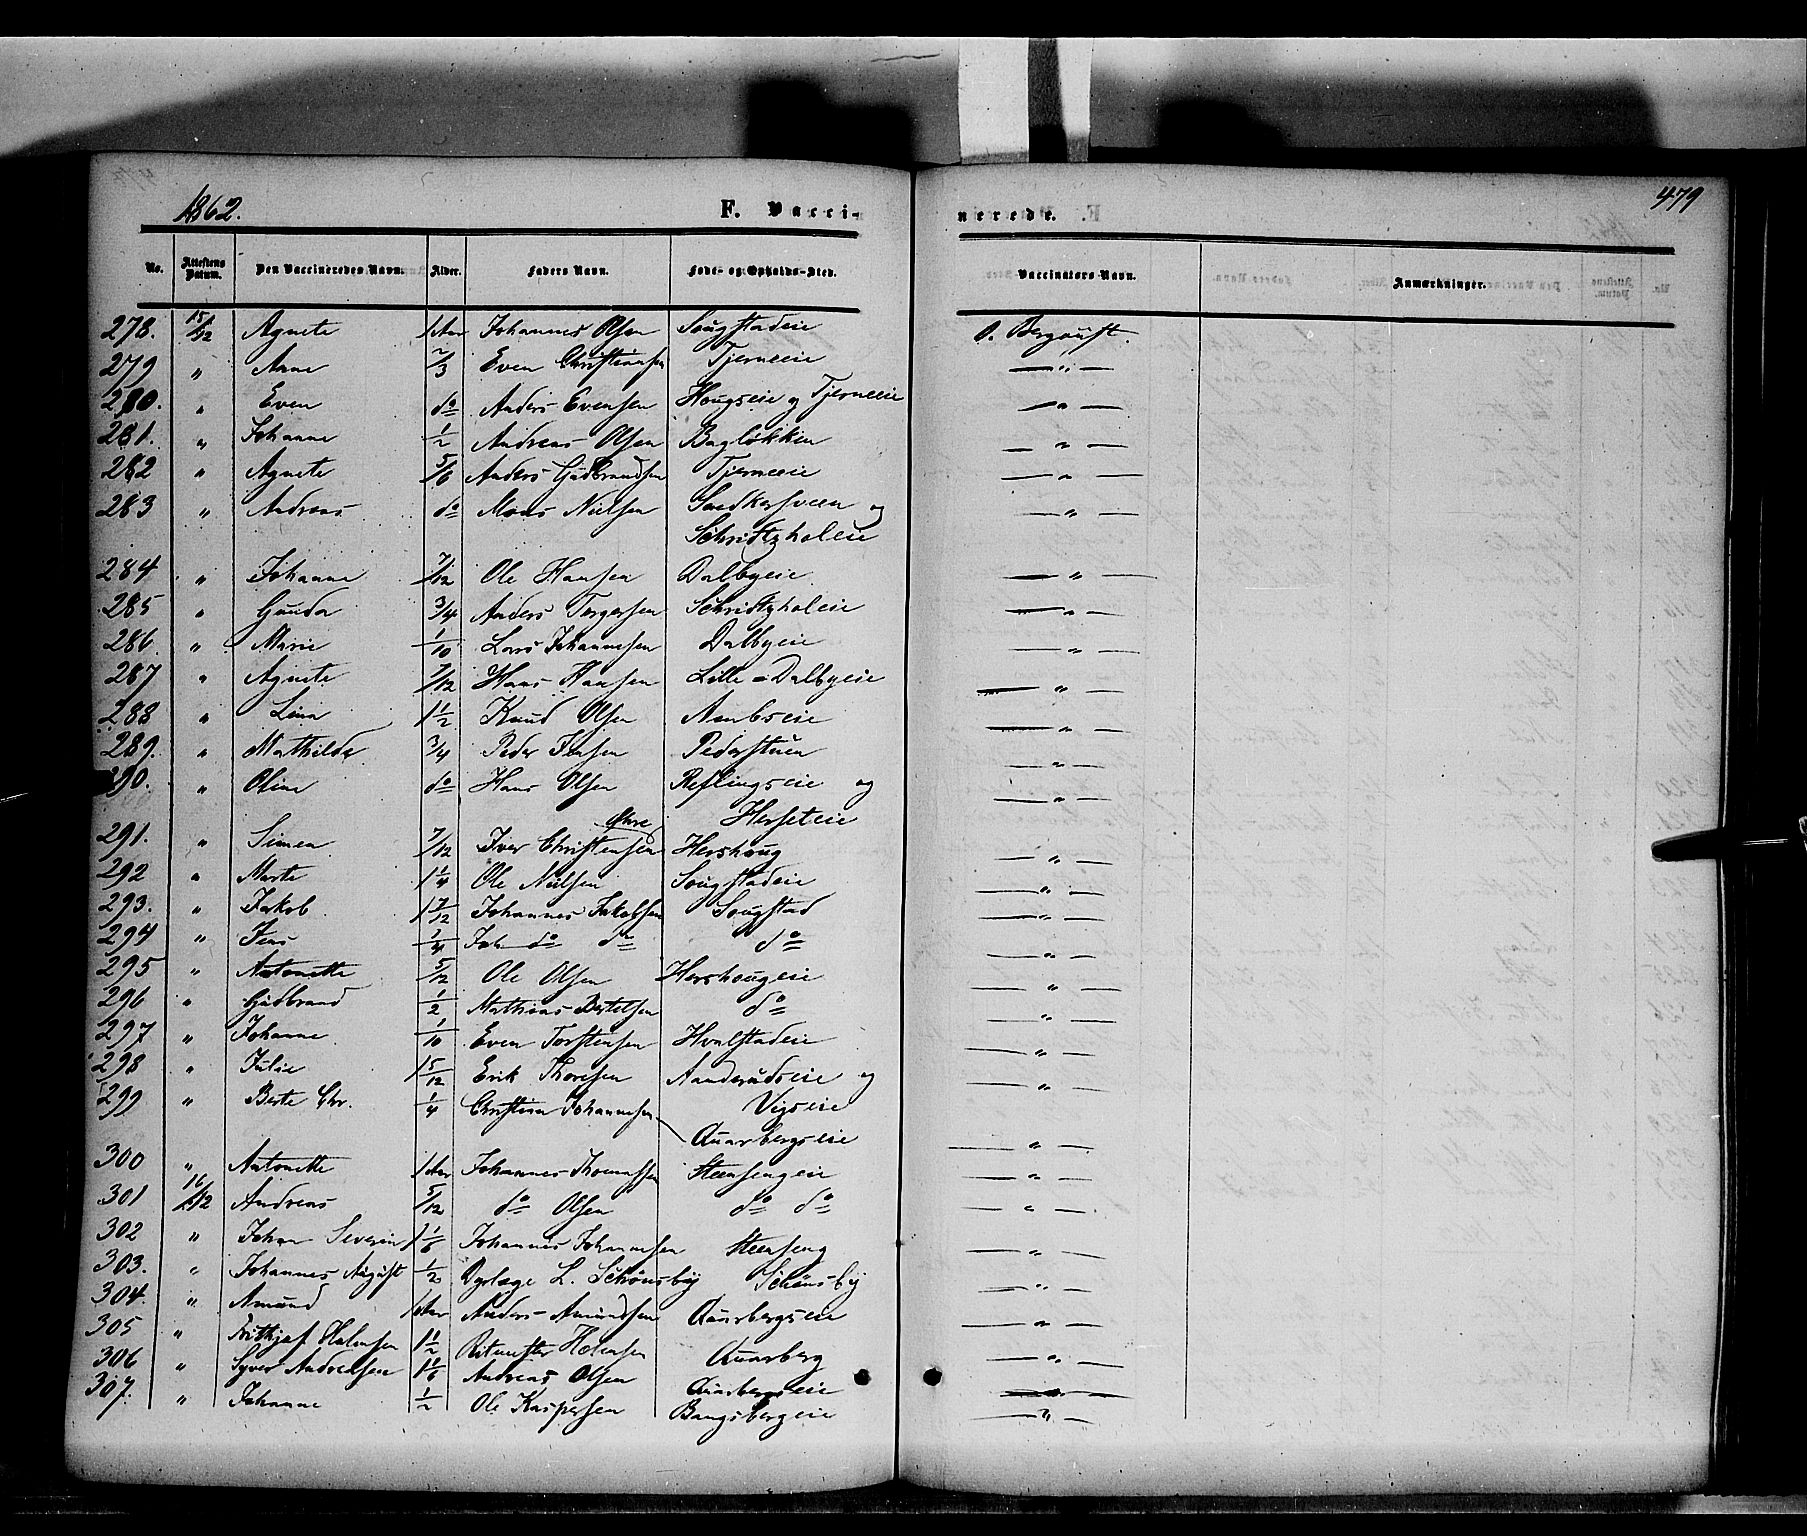 1862.
F. Vacci-
nerede.
479
No. Attestens Datum. Den Vaccineredes Navn. Alder. Faders Navn. Føde- og Opholds-Sted. Vaccinators Navn. Anmærkninger.
278. 15/12 Agnete 1 Aar Johannes Olsen Sougstadeie O. Bergqvist.
279 " Anne 2/3 Even Christiansen Tjerneeie — " —
280. " Even do Anders Evensen Hougseie og Tjerneeie — " —
281. " Johanne 1/2 Andreas Olsen Bagløkken — " —
282 " Agnete 5/6 Anders Gudbrandsen Tjerneeie — " —
283 " Andreas do Mons Nielsen Snedkersveen og — " —
Schridtzholeie
284 " Johanne 7/12 Ole Hansen Dalbyeie — " —
285 " Gunda 3/4 Anders Torgersen Schridtzholeie — " —
286 " Marie 1/10 Lars Johannesen Dalbyeie — " —
287 " Agnete 7/12 Hans Hansen Lille-Dalbyeie — " —
288 " Lina 1 1/2 Knud Olsen Aambseie — " —
289. " Mathilde 3/4 Peder Jensen Pederstuen — " —
290. " Oline do Hans Olsen Reflingseie og — " —
Herseteie
291. " Simen 7/12 Iver Christensen Øhre Hershoug — " —
292 " Marte 1 1/4 Ole Nielsen Sougstadeie — " —
293. " Jakob 1 7/12 Johannes Jakobsen Sougstad — " —
294 " Jens 1/4 Joh do do do — " —
295 " Antonette 5/12 Ole Olsen Hershougeie — " —
296 " Gudbrand 1/2 Mathias Bertelsen do — " —
297 " Johanne 1/10 Even Torstensen Hvalstadeie — " —
298 " Julie 1 5/12 Erik Thoresen Aanderudseie og — " —
299 " Berte Chr. 1/4 Christian Johannesen Vigseie
Auarbergseie — " —
300 " Antonette 1 Aar Johannes Thomassen Steensengeie — " —
301 16/12 Andreas 5/12 do Olsen do do — " —
302 " Johan Severin 1 1/6 Johannes Johannesen Steenseng — " —
303. " Johannes August 1/2 Dyrlæge L. Schønsby Schønsby — " —
304. " Amund 1 Aar Anders Amundsen Auarbergseie — " —
305 " Frithjof Holmsen 1 1/2 Ritmester Holmsen Auarberg — " —
306 " Syver Andreasen 1 1/6 Andreas Olsen Auarbergseie — " —
307. " Johanne 1/2 Ole Kaspersen Bangsbergeie — " —